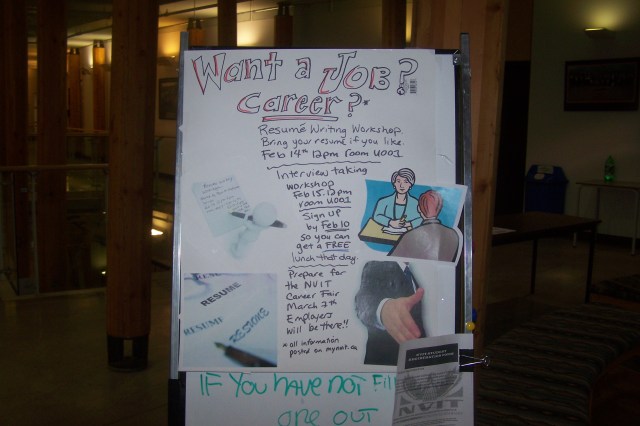 Want a JOB?
Career?*
Resumé Writing Workshop.
Bring your resumé if you like.
Feb 14th 12pm room U001
Interview taking
workshop
Feb 15. 12pm
room U001
Sign up
by Feb 10
so you can
get a FREE
lunch that day.
Prepare for
the NVIT
Career Fair
March 7th
Employers
will be there!!
* all information
posted on mynvit.ca
RESUME
RESUME
RESUME
IF YOU HAVE NOT FIL
one OUT
NVIT